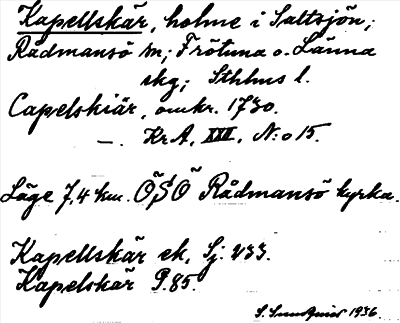 Kapellskär, holme i Saltsjön;
Rådmansö sn; Frötuna o. Länna
skg; Sthlms l.
Capelskiär, omkr. 1730.
—. Kr A, XXI, N:o 15.
Läge 7,4 km. ÖSÖ Rådmansö kyrka.
Kapellskär ek, Sj. 233.
Kapelskär P. 85.
S. 1936.